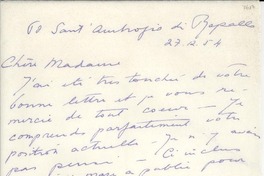 60 Sant'Ambrogio di Rapallo
27.12.54
Chère Madame
J'ai été très touché de votre
bonne lettre et je vous re-
mercie de tout coeur — Je
comprends parfaitement votre
position actuelle — Je n'y avais
pas pensé — Ci inclus
mari a publié pour